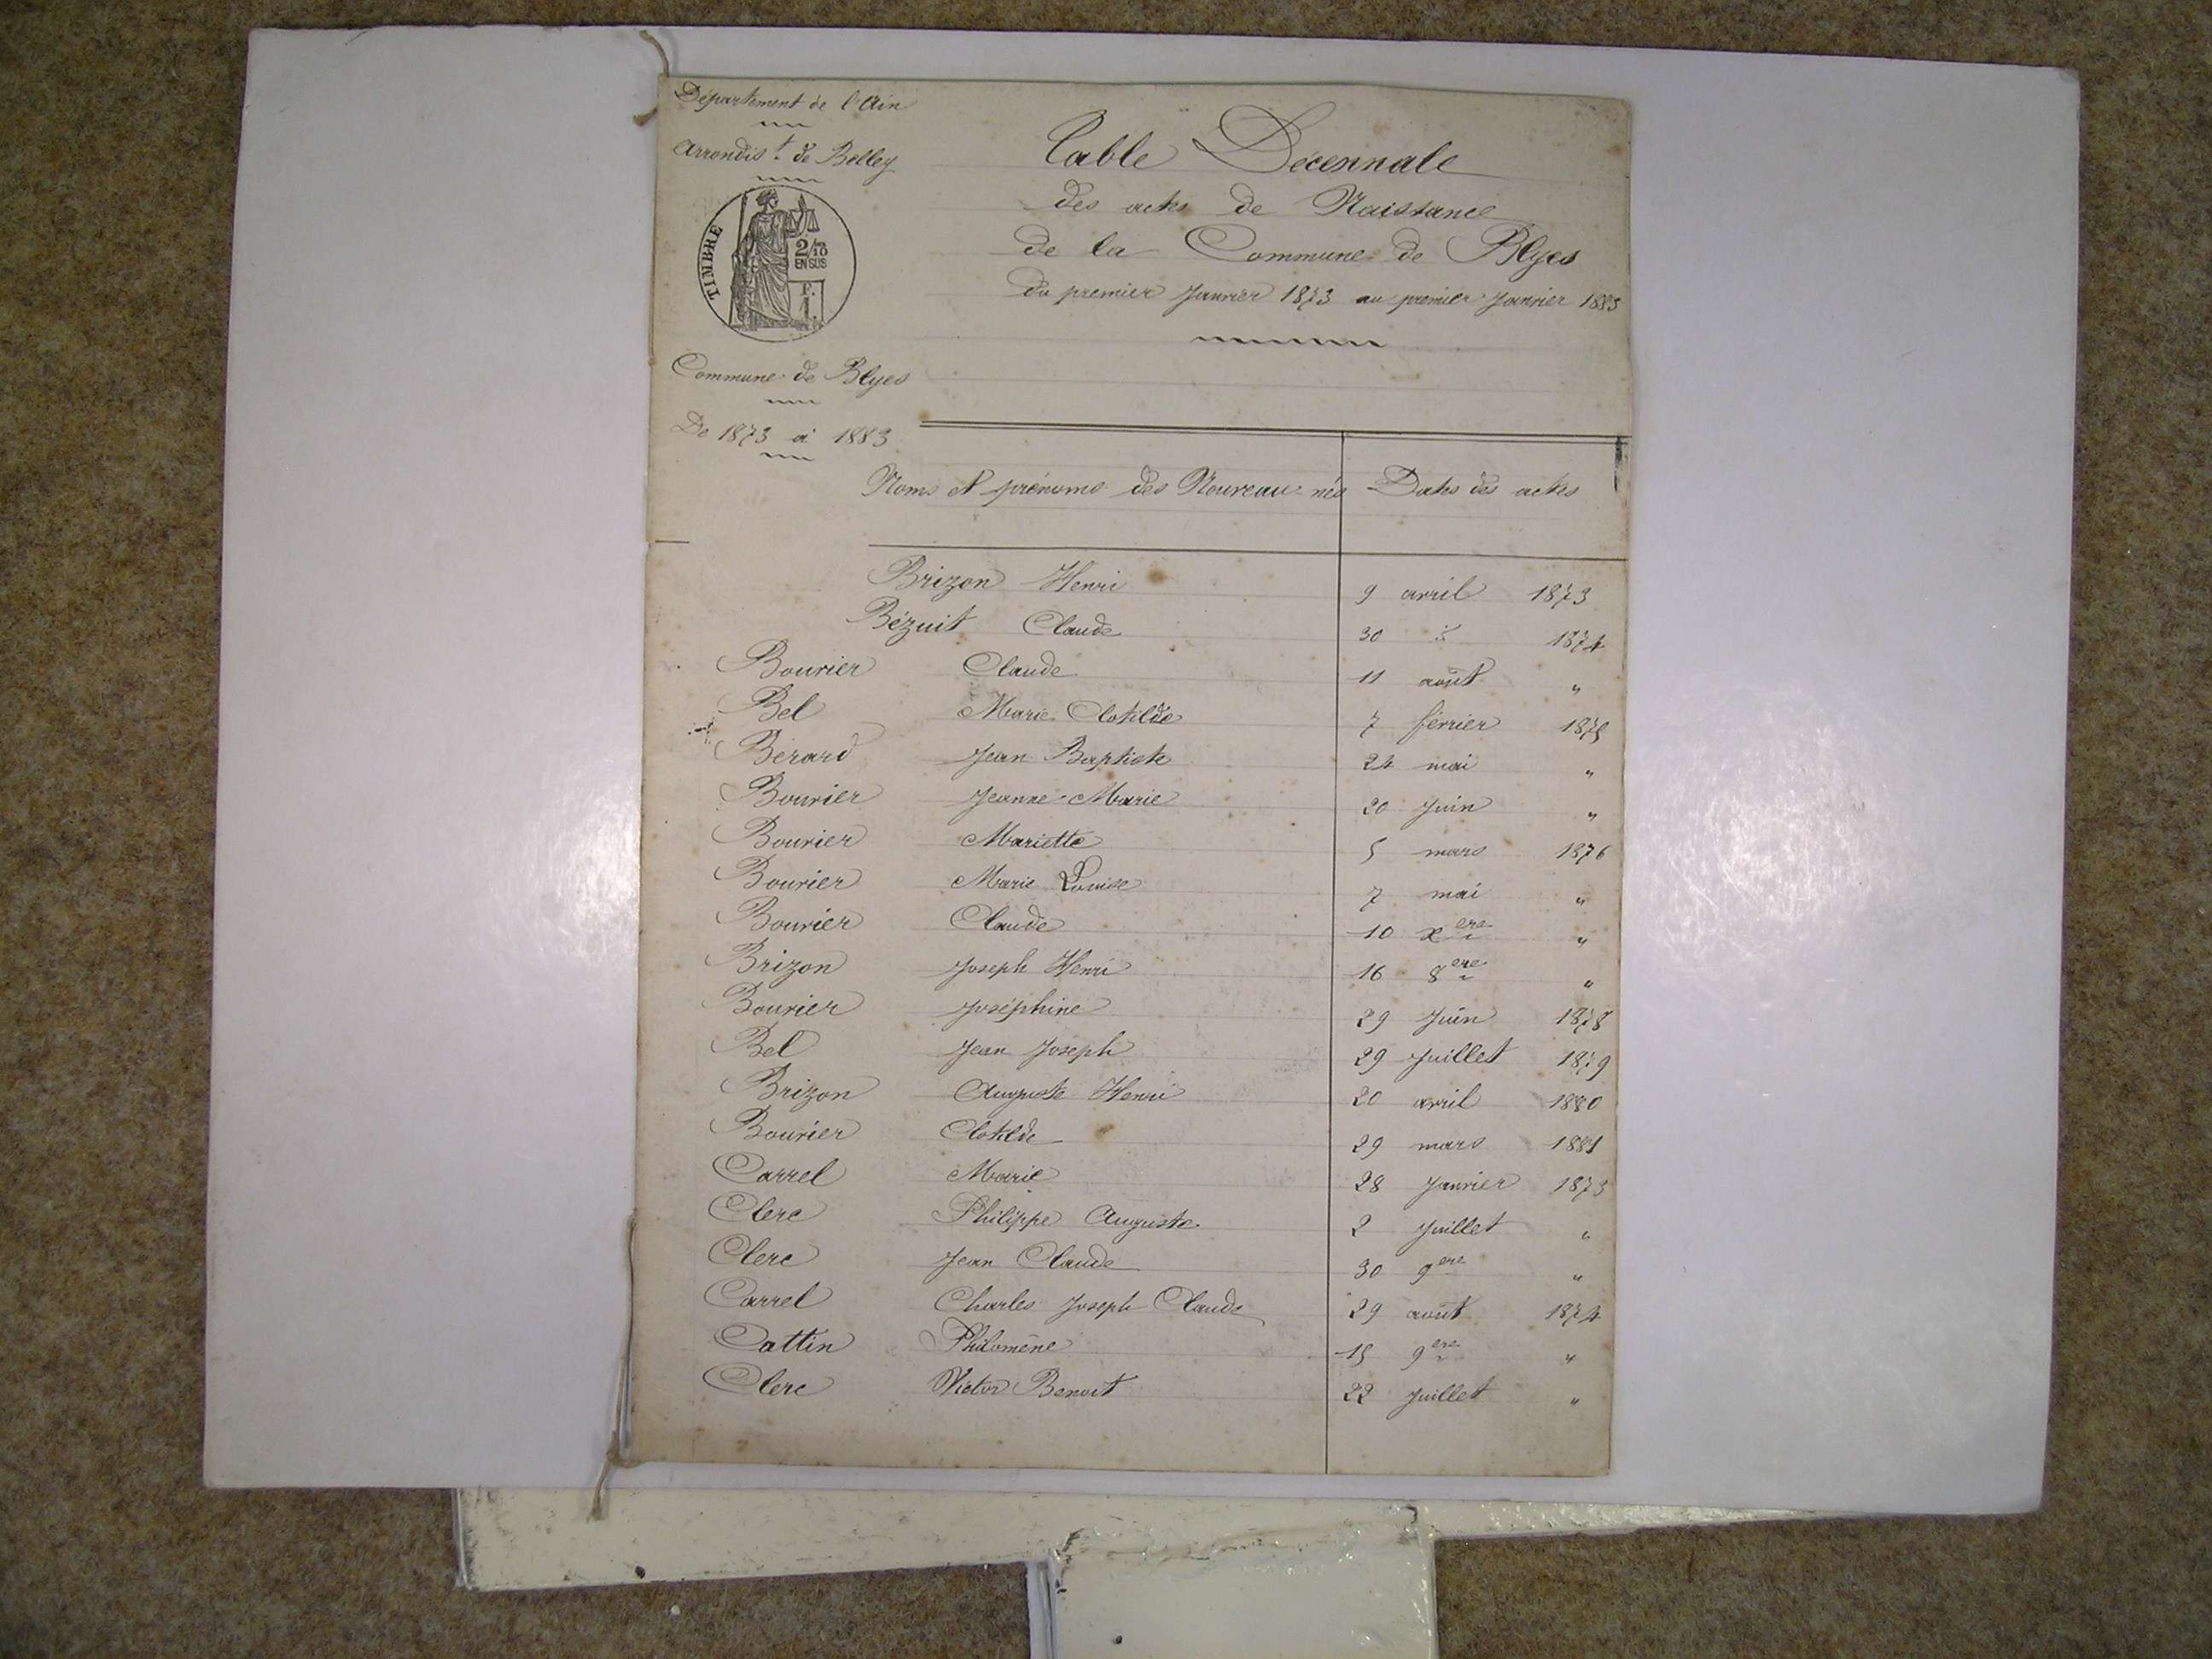 Département de l'Ain
Arrondist. de Belley
TIMBRE
2/10
EN SUS
Commune de Blyes
De 1873 à 1883
Table Décennale
des actes de Naissance
de la Commune de Blyes
du premier Janvier 1873 au premier Janvier 1883
Noms et prénoms des Nouveau-nés Dates des actes
Brizon Henri 9 avril 1873
Bézuit Claude 30 1874
Bouvier Claude 11 août "
Bel Marie Clotilde 7 février 1875
Bérard Jean Baptiste 24 mai "
Bouvier Jeanne-Marie 20 Juin "
Bouvier Mariette 5 mars 1876
Bouvier Marie Louise 7 mai "
Bouvier Claude 10 xere "
Brizon Joseph Henri 16 8ere "
Bouvier Joséphine 29 Juin 1878
Bel Jean Joseph 29 Juillet 1879
Brizon Auguste Henri 20 avril 1880
Bouvier Clotilde 29 mars 1881
Carrel Marie 28 Janvier 1873
Clerc Philippe Auguste 2 Juillet "
Clerc Jean Claude 30 9ere "
Carrel Charles Joseph Claude 29 août 1874
Cattin Philomène 15 9ere "
Clerc Victor Benoit 22 Juillet "